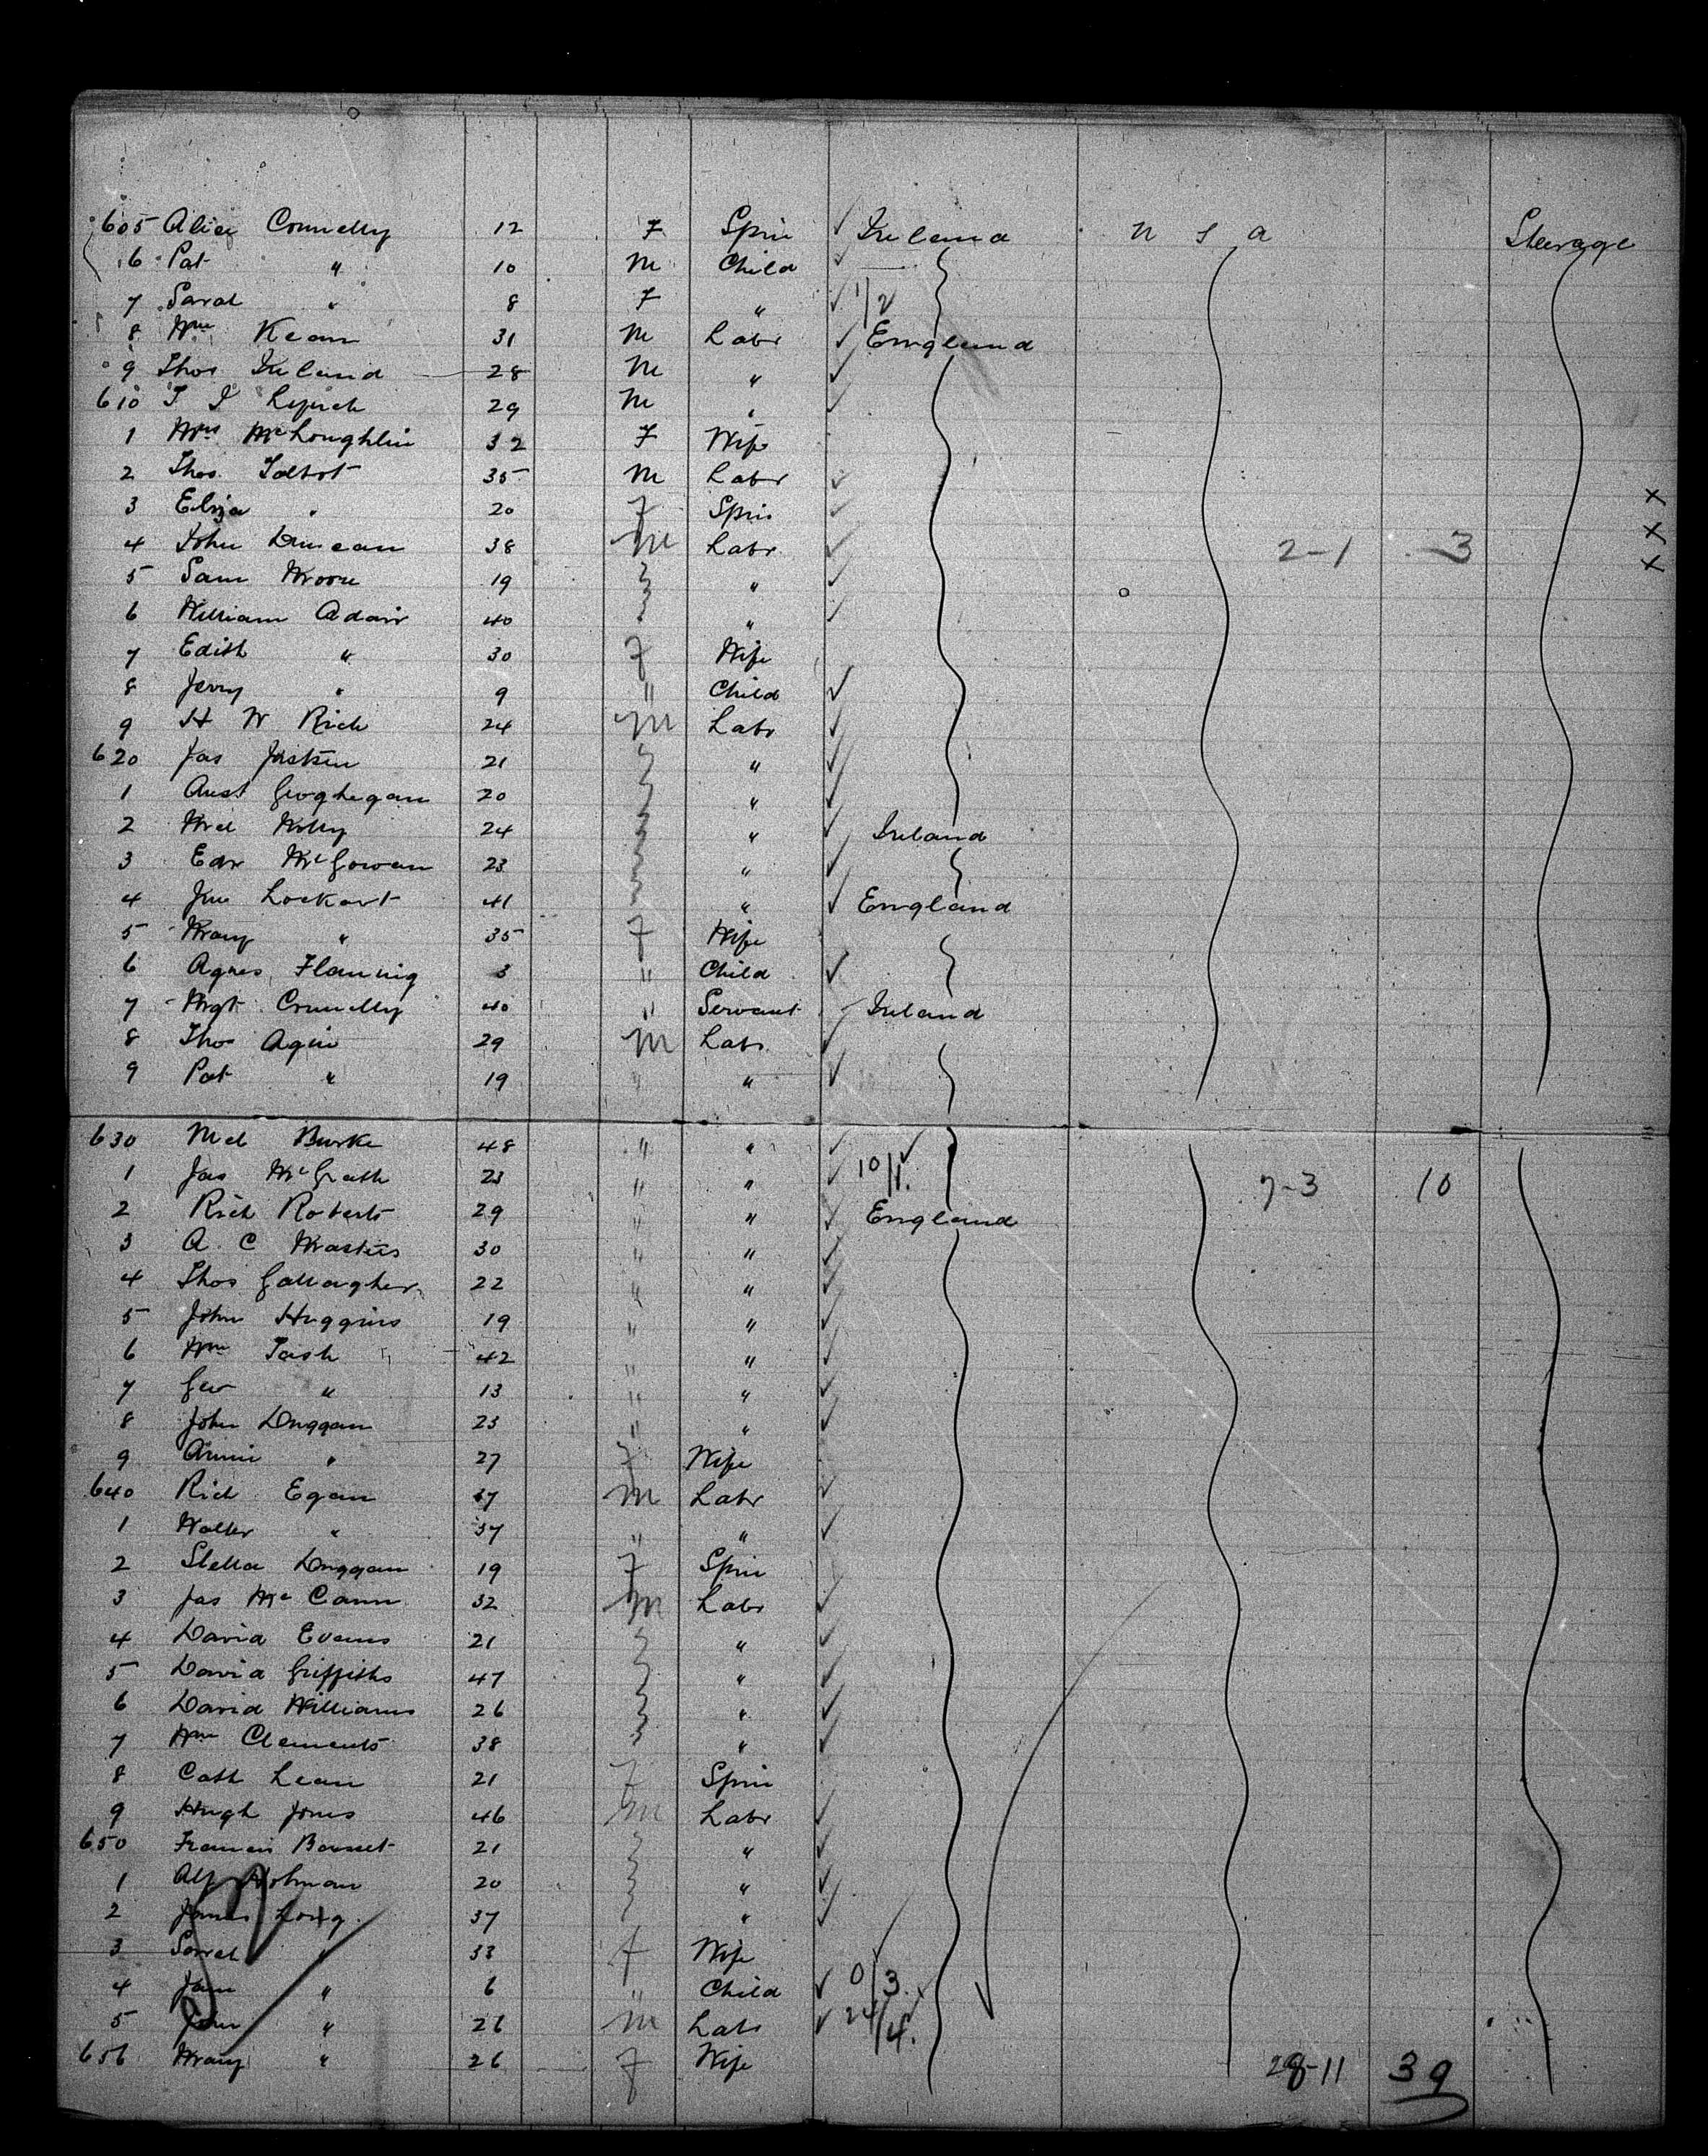 605 Alice Connelly 12 F Spin ✓ Ireland U S A Steerage
6 Pat " 10 M Child ✓
7 Sarah " 8 F " ✓ 1/2
8 Wm Kean 31 M Labr ✓ England
9 Thos Ireland 28 M " ✓
610 T J Lynch 29 M " ✓
1 Mrs McLoughlin 32 F Wife
2 Thos Talbot 35 M Labr ✓
3 Eliza " 20 F Spin ✓ X
4 John Duncan 38 M Labr ✓ 2-1 3 X
5 Sam Moore 19 " ✓ X
6 William Adair 40 " ✓
7 Edith " 30 F Wife
8 Jenny " 9 " Child ✓
9 H W Rich 24 M Labr ✓
620 Jas 21 " ✓
1 Aust Geoghegan 20 " ✓
2 Mcl 24 " ✓ Ireland
3 Edw McGowan 23 " ✓
4 Jno Lockart 41 " ✓ England
5 Mary " 35 F Wife
6 Agnes Flanning 3 " Child ✓
7 Mgt Connelly 40 " Servant ✓ Ireland
8 Thos Agin 29 M Labr ✓
9 Pat " 19 " " ✓
630 Mcl Burke 48 " " ✓
1 Jas McGrath 23 " " ✓ 10/1. 7-3 10
2 Rich Roberts 29 " " ✓ England
3 A. C Masters 30 " " ✓
4 Thos Gallagher 22 " " ✓
5 John Huggins 19 " " ✓
6 Wm Tash 42 " " ✓
7 Geo " 13 " " ✓
8 John Duggan 23 " " ✓
9 Annie " 27 F Wife
640 Rich Egan 37 M Labr ✓
1 Walter " 37 " " ✓
2 Stella Duggan 19 F Spin
3 Jas McCann 32 M Labr ✓
4 David Evans 21 " ✓
5 David Griffiths 47 " ✓
6 David Williams 26 " ✓
7 Wm Clements 38 " ✓
8 Cath Lean 21 F Spin
9 Hugh Jones 46 M Labr ✓
650 Francis 21 " ✓
1 Alf Holman 20 " ✓
2 James Long 37 " ✓
3 Sarah " 33 F Wife
4 Jane " 6 " Child ✓ 0/3.
5 " 26 M Labr ✓ 24/4.
656 Mary " 26 F Wife 28-11 39